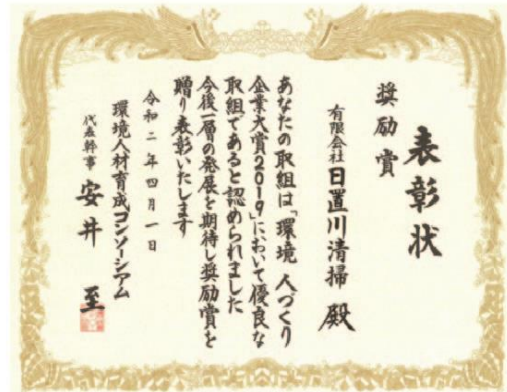 表彰状
奨励賞
有限会社日置川清掃 殿
あなたの取組は「環境 人づくり
企業大賞2019」において優良な
取組であると認められました
今後一層の発展を期待し奨励賞を
贈り表彰いたします
令和二年四月一日
環境人材育成コンソーシアム
代表幹事 安井 至